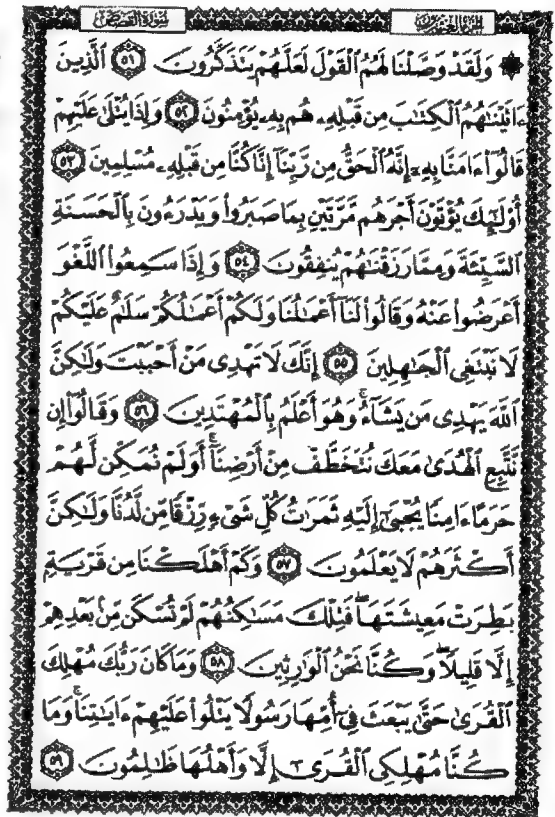 الجزء العشرون سورة القصص
۞ وَلَقَدْ وَصَّلْنَا لَهُمُ ٱلْقَوْلَ لَعَلَّهُمْ يَتَذَكَّرُونَ ٥١ ٱلَّذِينَ
ءَاتَيْنَٰهُمُ ٱلْكِتَٰبَ مِن قَبْلِهِۦ هُم بِهِۦ يُؤْمِنُونَ ٥٢ وَإِذَا يُتْلَىٰ عَلَيْهِمْ
قَالُوٓا۟ ءَامَنَّا بِهِۦٓ إِنَّهُ ٱلْحَقُّ مِن رَّبِّنَآ إِنَّا كُنَّا مِن قَبْلِهِۦ مُسْلِمِينَ ٥٣
أُو۟لَٰٓئِكَ يُؤْتَوْنَ أَجْرَهُم مَّرَّتَيْنِ بِمَا صَبَرُوا۟ وَيَدْرَءُونَ بِٱلْحَسَنَةِ
ٱلسَّيِّئَةَ وَمِمَّا رَزَقْنَٰهُمْ يُنفِقُونَ ٥٤ وَإِذَا سَمِعُوا۟ ٱللَّغْوَ
أَعْرَضُوا۟ عَنْهُ وَقَالُوا۟ لَنَآ أَعْمَٰلُنَا وَلَكُمْ أَعْمَٰلُكُمْ سَلَٰمٌ عَلَيْكُمْ
لَا نَبْتَغِى ٱلْجَٰهِلِينَ ٥٥ إِنَّكَ لَا تَهْدِى مَنْ أَحْبَبْتَ وَلَٰكِنَّ
ٱللَّهَ يَهْدِى مَن يَشَآءُ ۚ وَهُوَ أَعْلَمُ بِٱلْمُهْتَدِينَ ٥٦ وَقَالُوٓا۟ إِن
نَّتَّبِعِ ٱلْهُدَىٰ مَعَكَ نُتَخَطَّفْ مِنْ أَرْضِنَآ ۚ أَوَلَمْ نُمَكِّن لَّهُمْ
حَرَمًا ءَامِنًا يُجْبَىٰٓ إِلَيْهِ ثَمَرَٰتُ كُلِّ شَىْءٍ رِّزْقًا مِّن لَّدُنَّا وَلَٰكِنَّ
أَكْثَرَهُمْ لَا يَعْلَمُونَ ٥٧ وَكَمْ أَهْلَكْنَا مِن قَرْيَةٍۭ
بَطِرَتْ مَعِيشَتَهَا ۖ فَتِلْكَ مَسَٰكِنُهُمْ لَمْ تُسْكَن مِّنۢ بَعْدِهِمْ
إِلَّا قَلِيلًا ۖ وَكُنَّا نَحْنُ ٱلْوَٰرِثِينَ ٥٨ وَمَا كَانَ رَبُّكَ مُهْلِكَ
ٱلْقُرَىٰ حَتَّىٰ يَبْعَثَ فِىٓ أُمِّهَا رَسُولًا يَتْلُوا۟ عَلَيْهِمْ ءَايَٰتِنَا ۚ وَمَا
كُنَّا مُهْلِكِى ٱلْقُرَىٰٓ إِلَّا وَأَهْلُهَا ظَٰلِمُونَ ٥٩